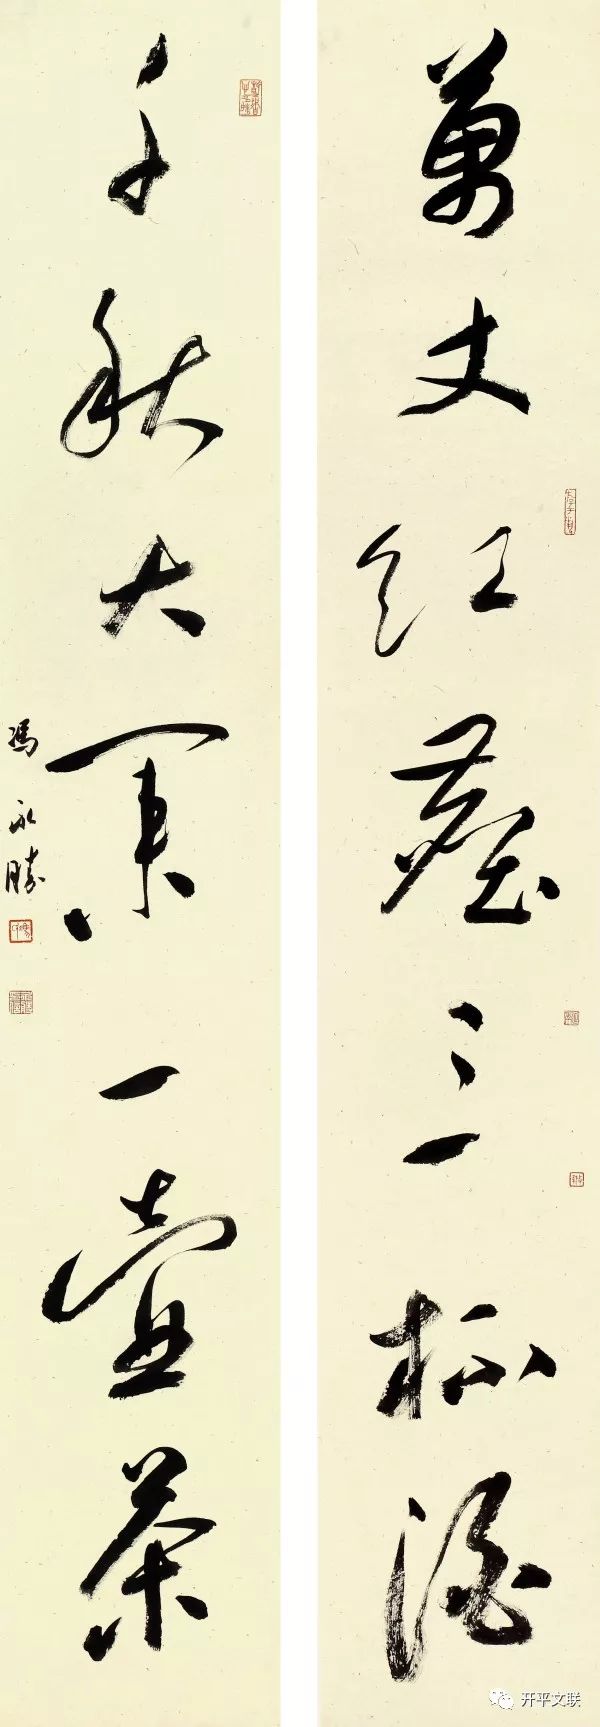 萬丈紅塵三杯酒
千秋大業一壺茶
馮永勝
开平文联